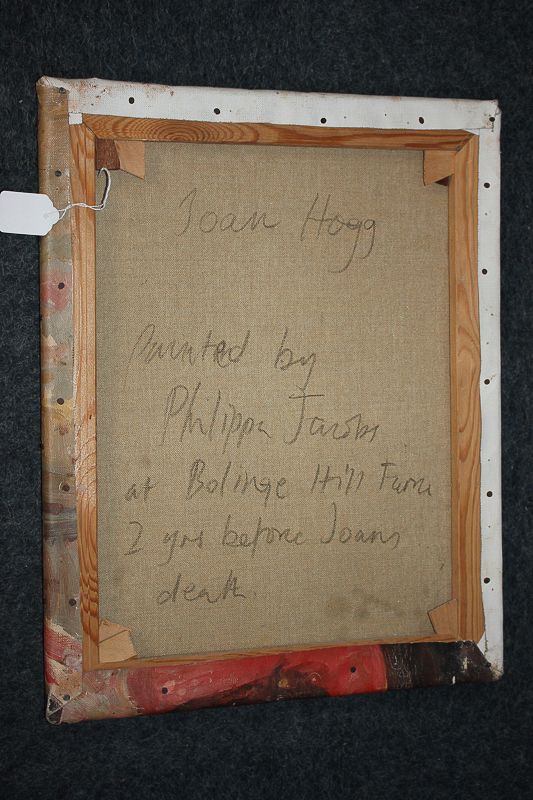 Joan Hogg
Painted by
Philippa Jacobs
at Bolinge Hill Farm
2 yrs before Joans
death.